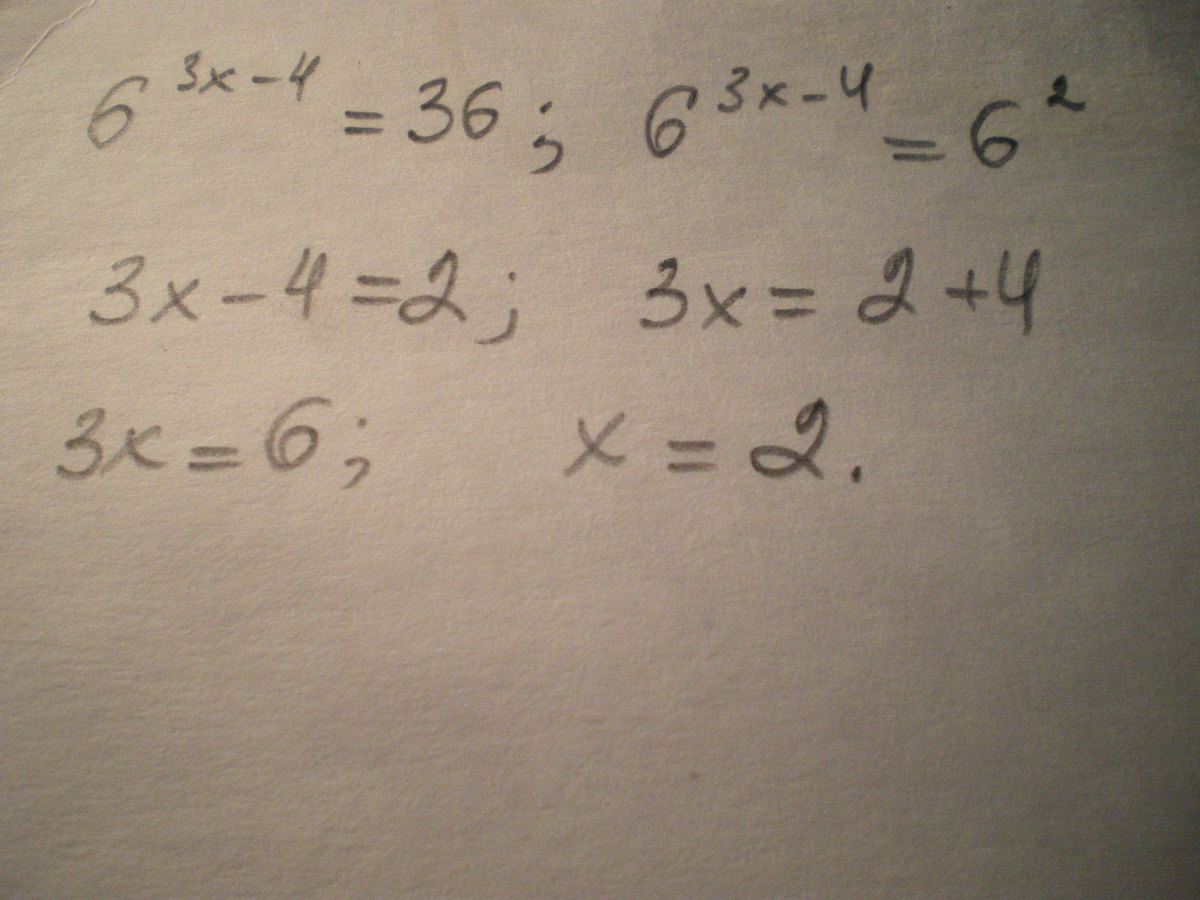 6^{3x-4} = 36; 6^{3x-4} = 6^2
3x-4=2; 3x = 2+4
3x=6; x = 2.